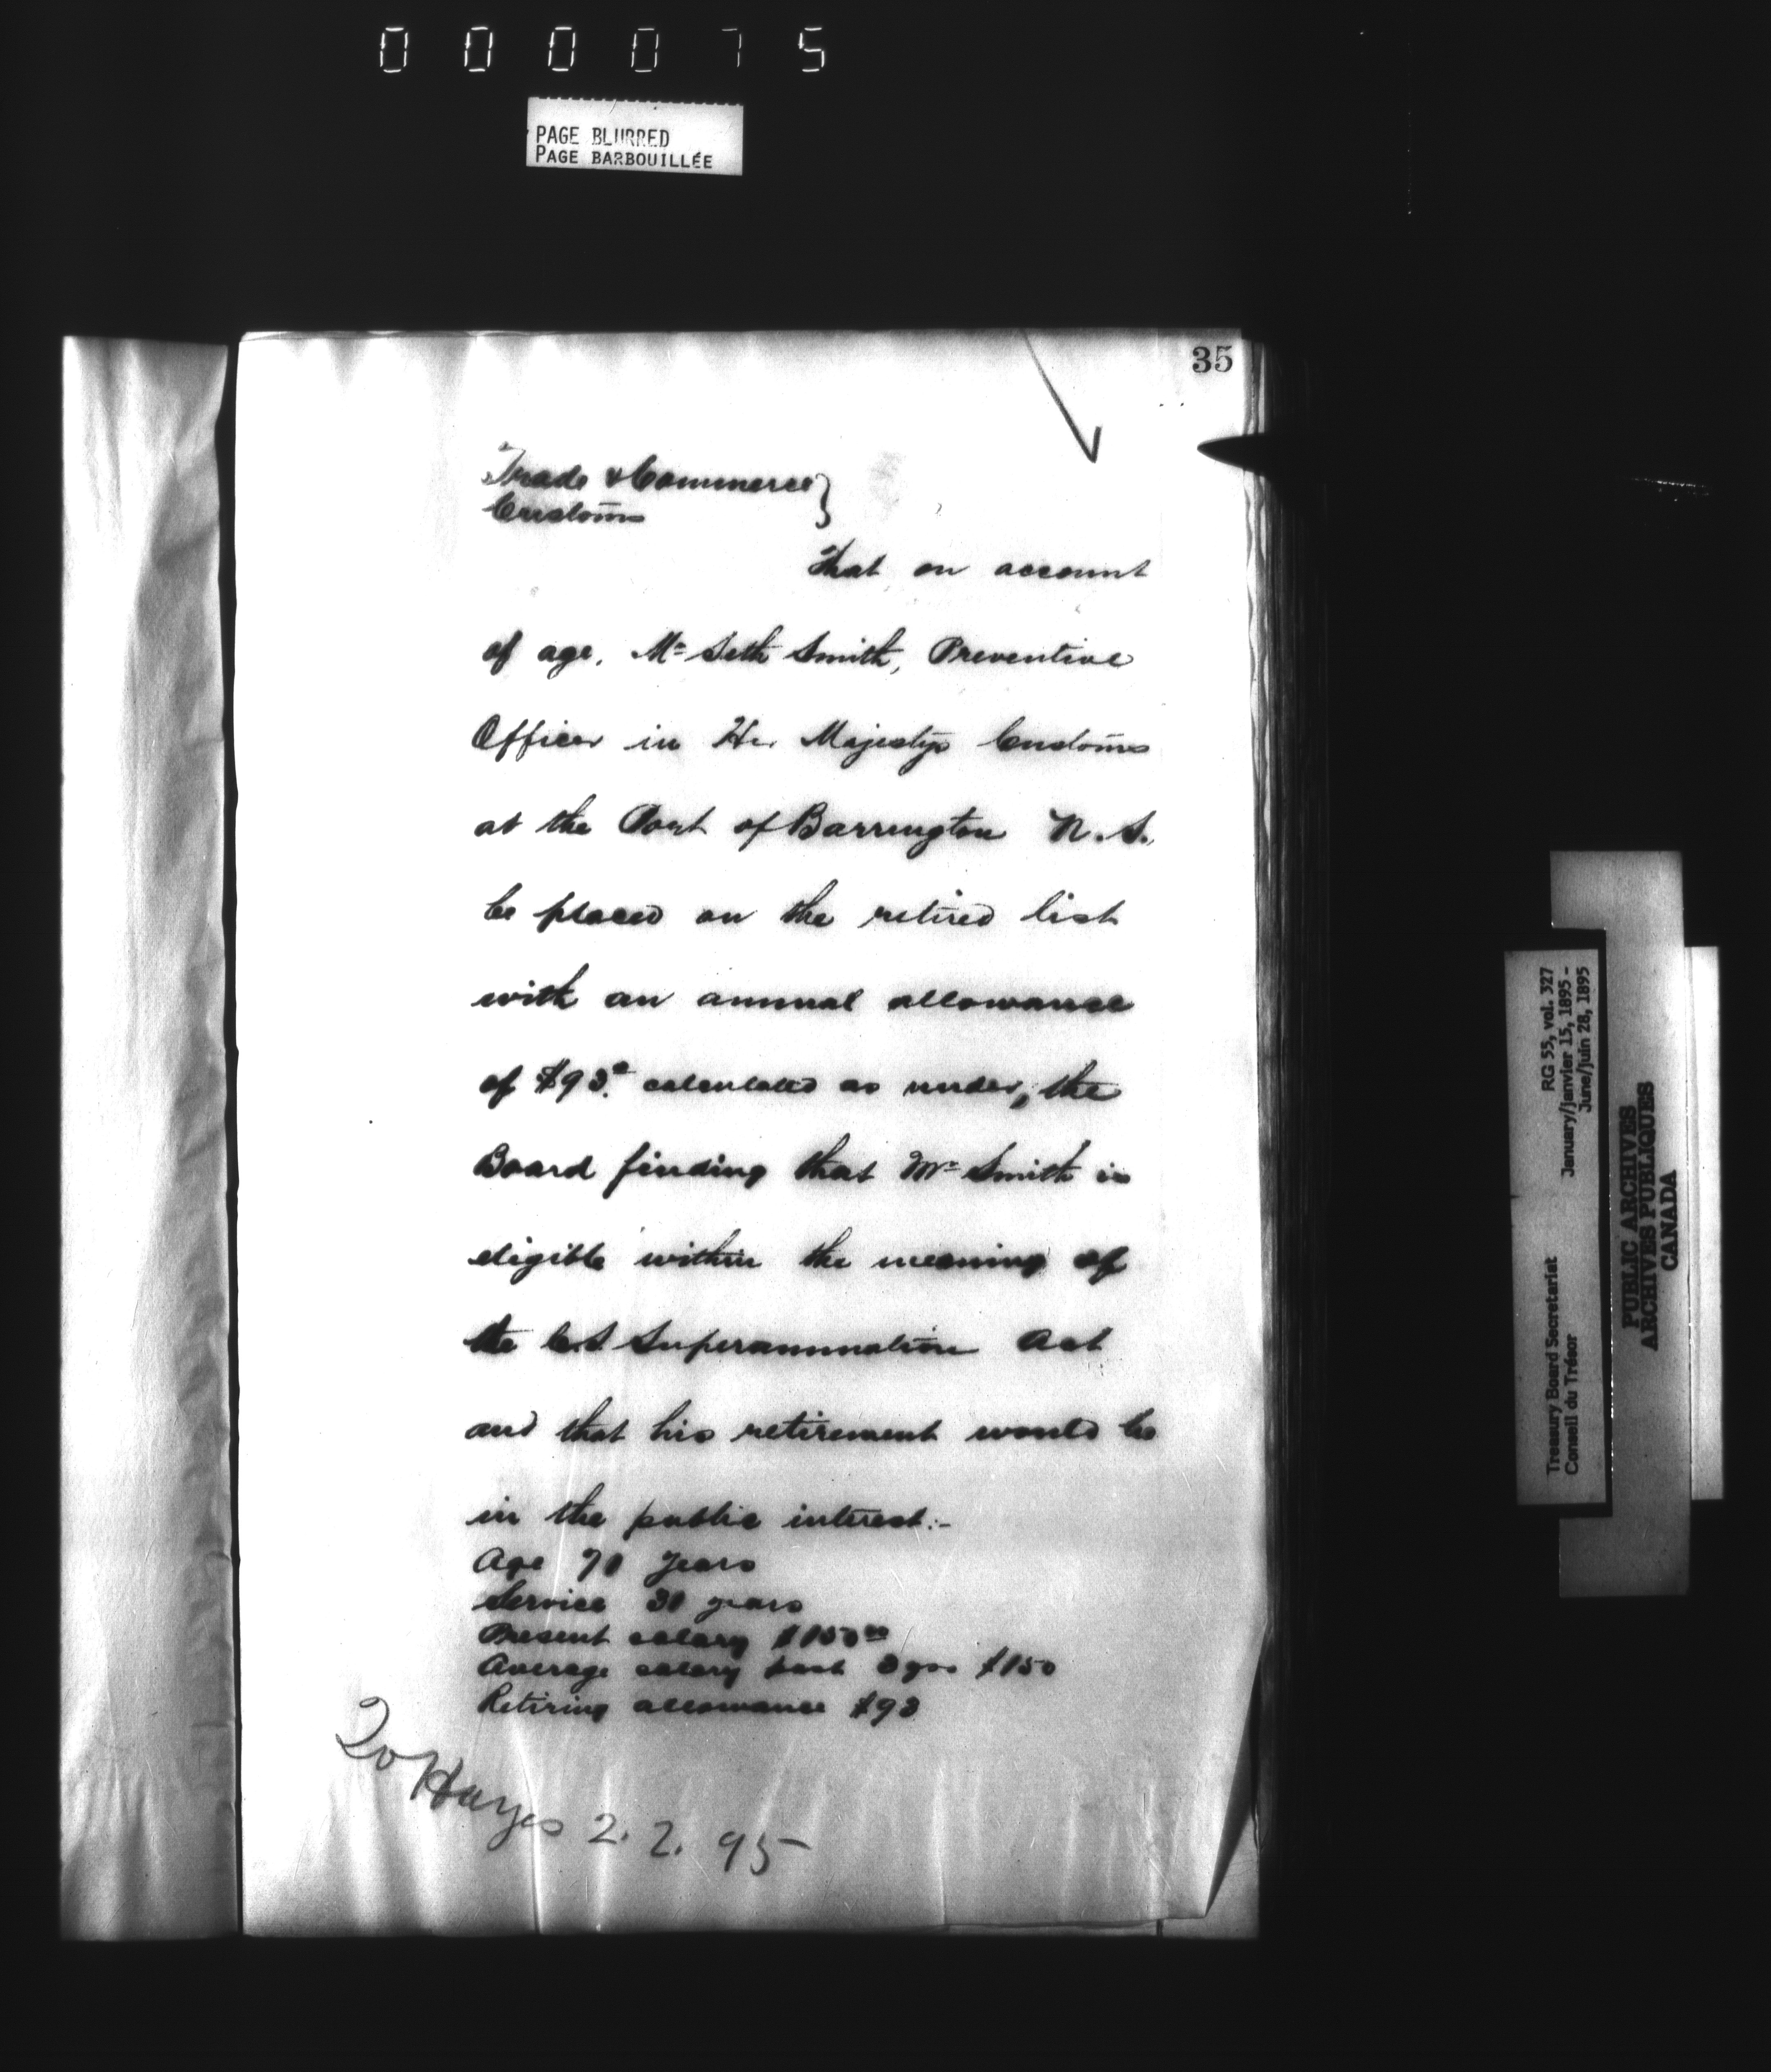 000075
PAGE BLURRED
PAGE BARBOUILLÉE
35
Trade & Commerce }
Customs
That on account
of age, Mr Seth Smith, Preventive
Officer in Her Majestys Customs
at the Port of Barrington N.S.,
be placed on the retired list
with an annual allowance
of $93. calculated as under, the
Board finding that Mr Smith is
eligible within the meaning of
the C.S Superannuation Act
and that his retirement would be
in the public interest:-
Age 71 years
Service 31 years
Present salary $150 00
Average salary past 3 yrs $150
Retiring allowance $93
Hayes 2.2.95
RG 55, vol. 327
January/janvier 15, 1895 -
June/juin 28, 1895
Treasury Board Secretariat
Conseil du Trésor
PUBLIC ARCHIVES
ARCHIVES PUBLIQUES
CANADA